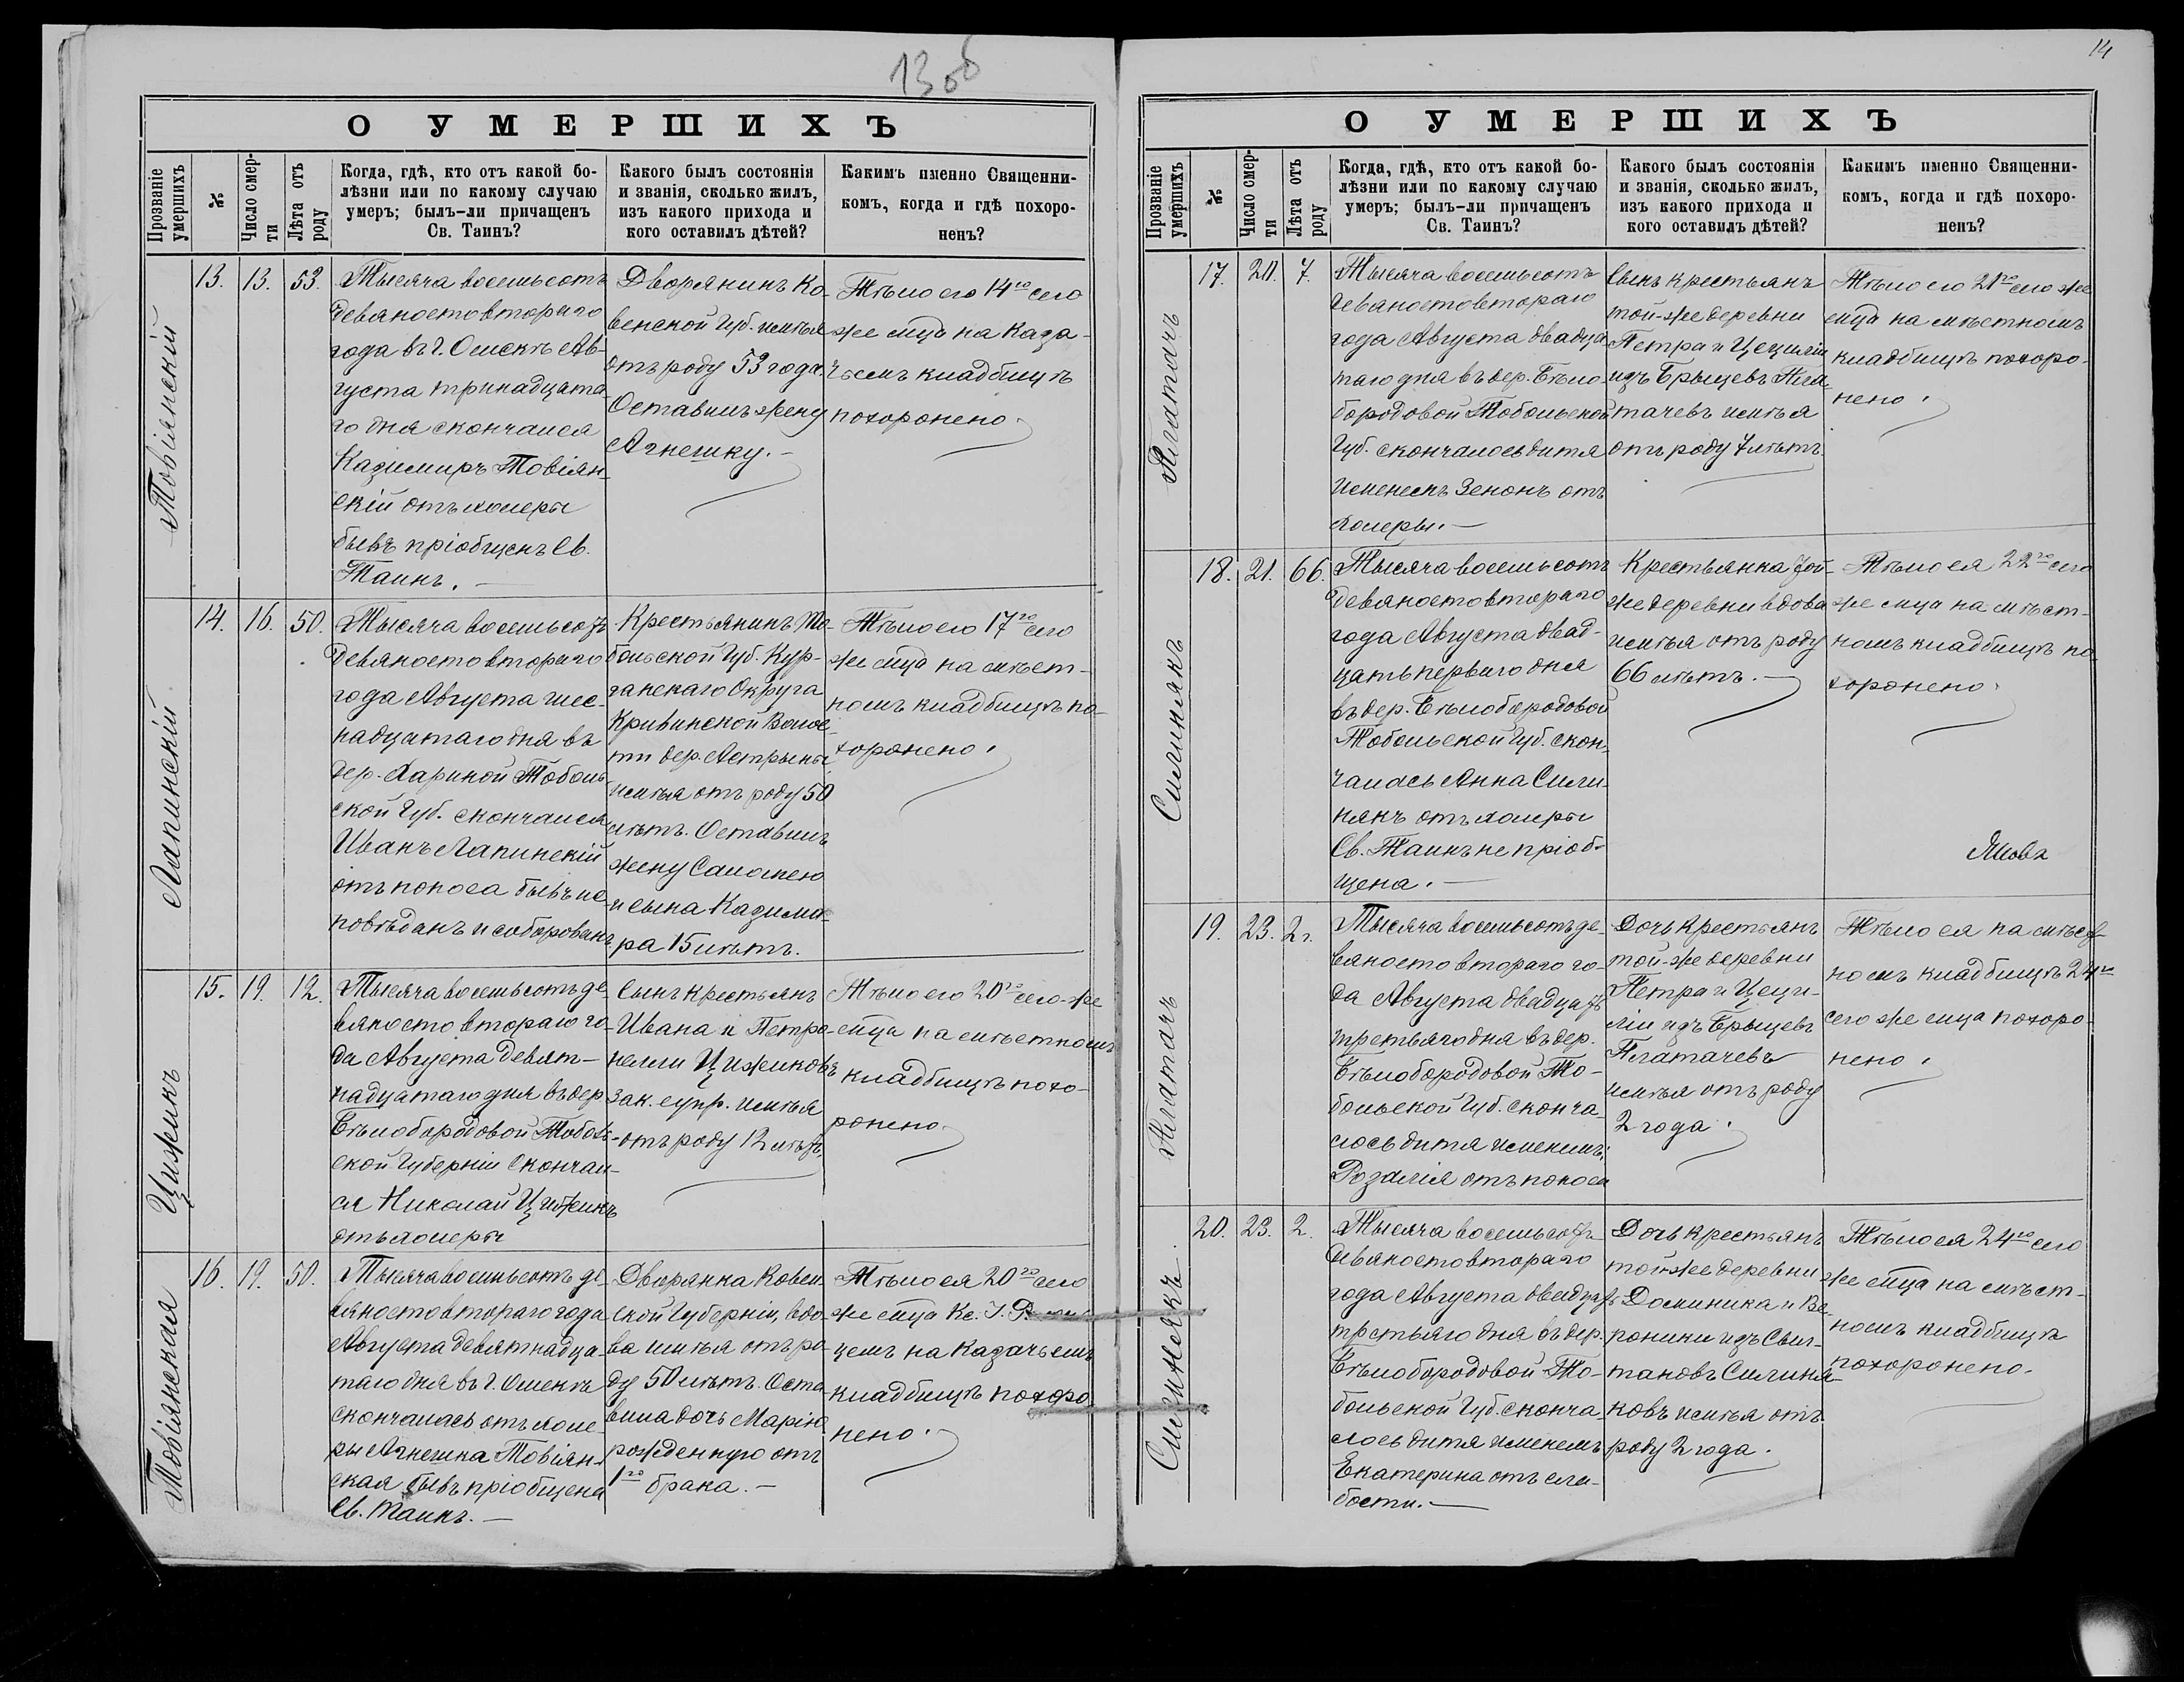 13 об
О УМЕРШИХЪ
Прозваніе умершихъ
№
Число смерти
Лѣта отъ роду
Когда, гдѣ, кто отъ какой бо-
лѣзни или по какому случаю
умеръ; былъ-ли причащенъ
Св. Таинъ?
Какого былъ состоянія
и званія, сколько жилъ,
изъ какого прихода и
кого оставилъ дѣтей?
Какимъ именно Священни-
комъ, когда и гдѣ похоро-
ненъ?
Товіянскій
13. 13. 53.
Тысяча восемьсотъ
девяносто втораго
года въ г. Омскѣ Ав-
густа тринадцата-
го дня скончался
Казимиръ Товіян-
скій отъ холеры
бывъ пріобщенъ Св.
Таинъ. —
Дворянинъ Ко-
венской Губ. имѣя
отъ роду 53 года.
Оставилъ жену
Агнешку. —
Тѣло его 14го сего
же мца на Каза-
чьемъ кладбищѣ
похоронено.
Лапинскій
14. 16. 50.
Тысяча восемьсотъ
девяносто втораго
года Августа шес-
надцатаго дня въ
дер. Хариной Тоболь
ской Губ. скончался
Иванъ Лапинскій
отъ поноса бывъ ис-
повѣданъ и соборованъ.
Крестьянинъ То-
больской Губ. Кур-
ганскаго Округа
Кривинской Волос-
ти дер.
имѣя отъ роду 50
лѣтъ. Оставилъ
жену Саломею
и сына Казими-
ра 15 лѣтъ.
Тѣло его 17го сего
же мца на мѣст-
номъ кладбищѣ по-
хоронено.
Цижикъ
15. 19. 12.
Тысяча восемьсотъ де-
вяносто втораго го-
да Августа девят-
надцатаго дня въ дер
Бѣлобородовой Тоболь-
ской Губерніи скончал-
ся Николай Цижикъ
отъ холеры
Сынъ крестьянъ
Ивана и Петро-
нелли Цижиковъ
зак. супр. имѣя
отъ роду 12 лѣтъ.
Тѣло его 20го сего же
мца на мѣстномъ
кладбищѣ похо-
ронено.
Товіянская
16. 19. 50.
Тысяча восемьсотъ де-
вяносто втораго года
Августа девятнадца-
таго дня въ г. Омскѣ
скончалась отъ холе-
ры Агнешка Товіян-
ская бывъ пріобщена
Св. Таинъ. —
Дворянка Ковен-
ской Губерніи, вдо-
ва имѣя отъ ро-
ду 50 лѣтъ. Оста-
вила дочь Марію
рожденную отъ
1го брака. —
Тѣло ея 20го сего
же мца Кс. І.
цемъ на Казачьемъ
кладбищѣ похоро-
нено.
14
О УМЕРШИХЪ
Прозваніе умершихъ
№
Число смерти
Лѣта отъ роду
Когда, гдѣ, кто отъ какой бо-
лѣзни или по какому случаю
умеръ; былъ-ли причащенъ
Св. Таинъ?
Какого былъ состоянія
и званія, сколько жилъ,
изъ какого прихода и
кого оставилъ дѣтей?
Какимъ именно Священни-
комъ, когда и гдѣ похоро-
ненъ?
Платачъ
17. 20. 7.
Тысяча восемьсотъ
девяносто втораго
года Августа двадца-
таго дня въ дер. Бѣло-
бородовой Тобольской
Губ. скончалось дитя
именемъ Зенонъ отъ
холеры. —
Сынъ крестьянъ
той-же деревни
Петра и Цециліи
изъ Брыцевъ Пла-
тачевъ имѣя
отъ роду 7 лѣтъ.
Тѣло его 21го сего же
мца на мѣстномъ
кладбищѣ похоро-
нено.
Силинякъ
18. 21. 66.
Тысяча восемьсотъ
девяносто втораго
года Августа двад-
цать перваго дня
въ дер. Бѣлобородовой
Тобольской Губ. скон-
чалась Анна Сили-
някъ отъ холеры
Св. Таинъ не пріоб-
щена. —
Крестьянка той-
же деревни вдова
имѣя отъ роду
66 лѣтъ. —
Тѣло ея 22го сего
же мца на мѣст-
номъ кладбищѣ по-
хоронено.
Платачъ
19. 23. 2 г.
Тысяча восемьсотъ де-
вяносто втораго го-
да Августа двадцать
третьяго дня въ дер.
Бѣлобородовой То-
больской Губ. сконча-
лось дитя именемъ
Розалія отъ поноса
Дочь крестьянъ
той-же деревни
Петра и Цеци-
ліи изъ Брыцевъ
Платачевъ
имѣя отъ роду
2 года.
Тѣло ея на мѣст-
номъ кладбищѣ 24го
сего же мца похоро-
нено.
Силинякъ
20. 23. 2.
Тысяча восемьсотъ
девяносто втораго
года Августа двадцать
третьяго дня въ дер.
Бѣлобородовой То-
больской Губ. сконча-
лось дитя именемъ
Екатерина отъ сла-
бости. —
Дочь крестьянъ
той же деревни
Доминика и Ве-
роники изъ
Силиня-
ковъ имѣя отъ
роду 2 года.
Тѣло ея 24го сего
же мца на мѣст-
номъ кладбищѣ
похоронено.